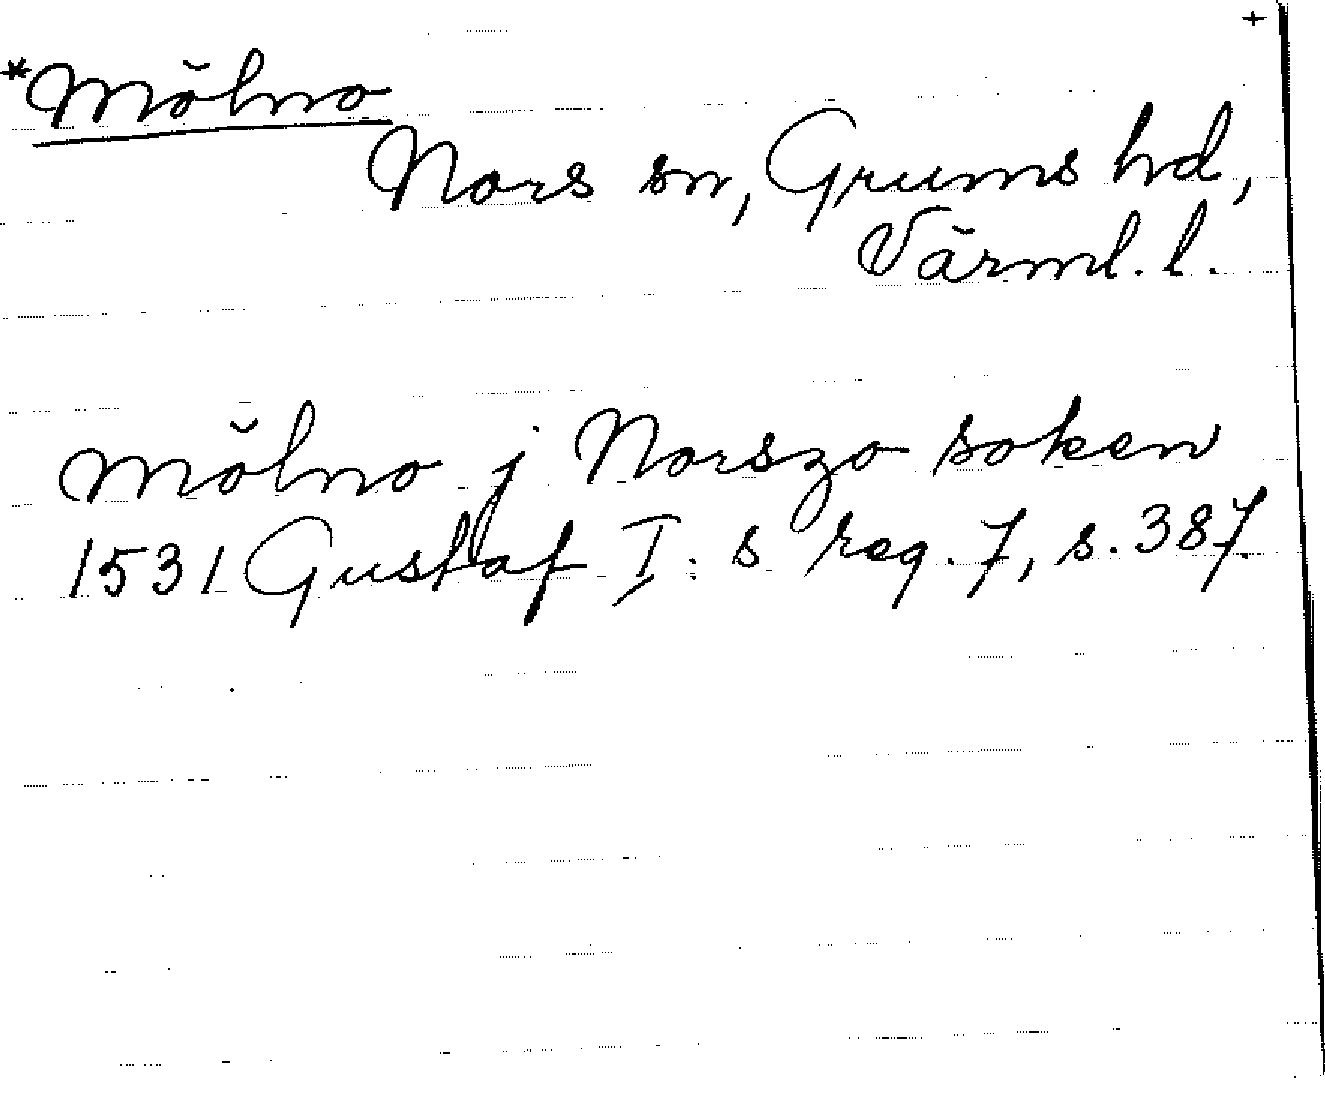 +
*Mölno
Nors sn, Grums hd,
Värml. l.
Mölno j Norszo soken
1531 Gustaf I:s reg. 7, s. 387.